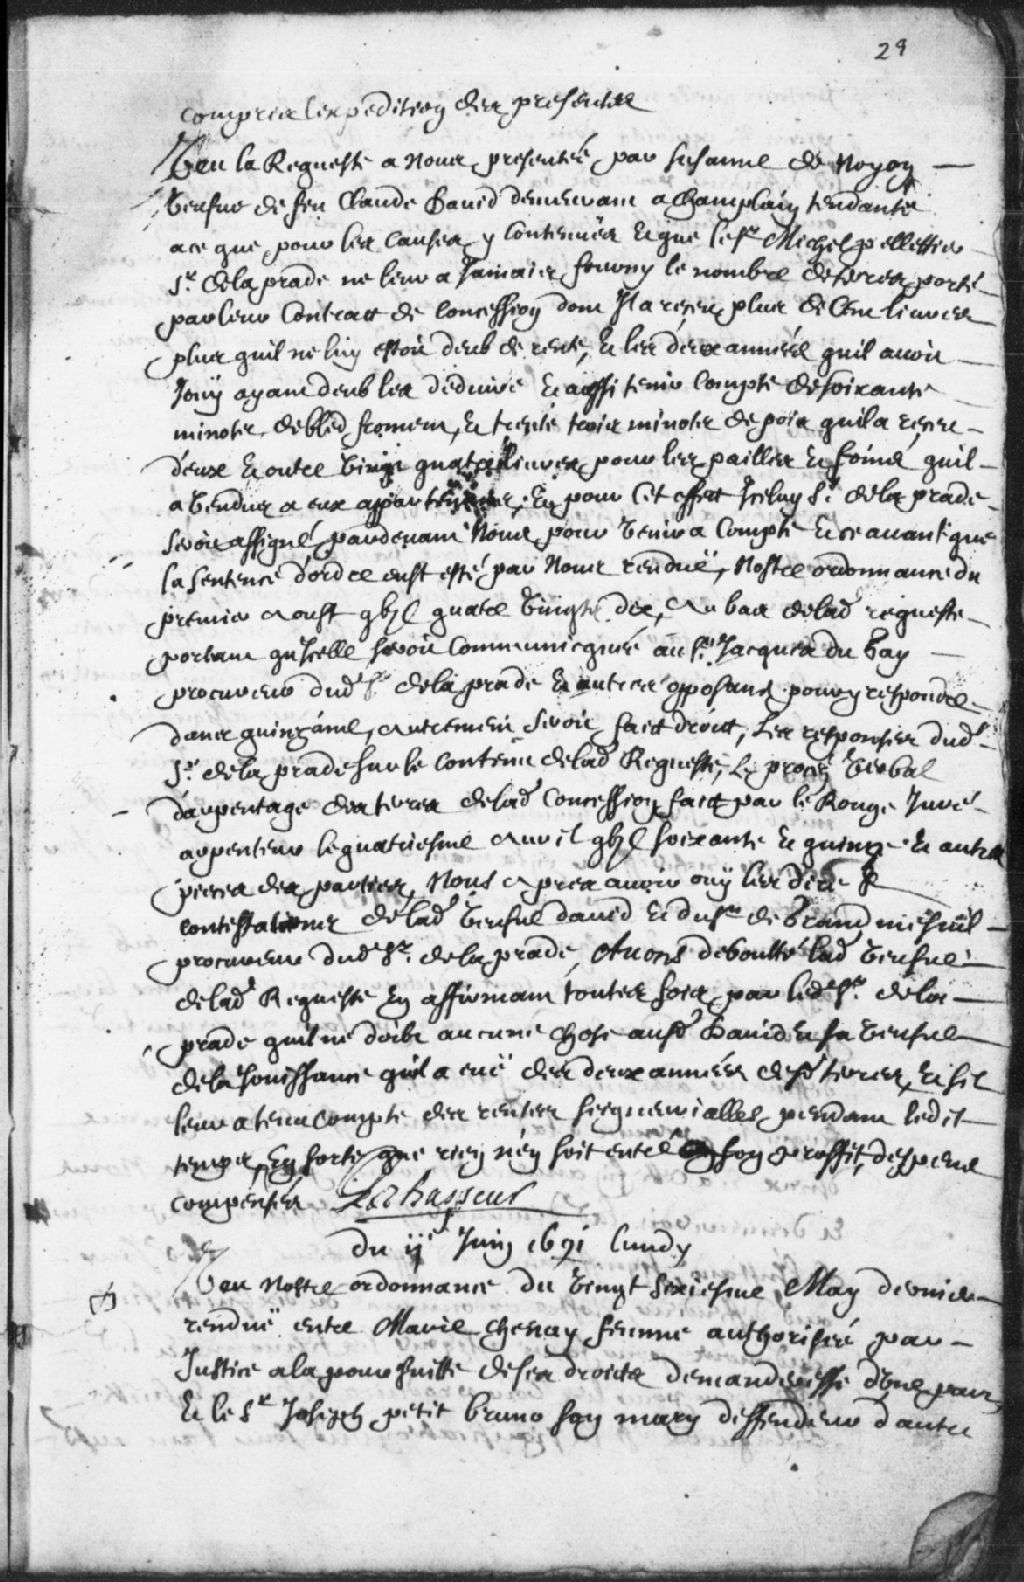 29
compris lexpedition des presentes
Veu la Requeste a Nous presentée par susanne de Noyon
Veufue de feu Claude Dauid demeurant a Champlain tendante
a ce que pour les Causes y Contenues Et que le sr Michel pelletier
sr. de la prade ne leur a Jamais fourny le nombre de terres porté
par leur Contract de Concession dont Il a receu plus de Cent liures
plus quil ne luy estoit deub de rente, Et les deux années quil auoit
Jouy ayant deub les deduire Et aussi tenir Compte de soixante
minots de bled froment, Et trente trois minots de pois quil a receu
deux Et outre Vingt quatre liures pour les pailles Et foins quil
a Vendus a eux appartenans; Et pour Cet effect Iceluy Sr. de la prade
seroit assigné pardeuant Nous pour Venir a Compte Et ce auant que
la sentence dordre eust esté par Nous rendue, Nostre ordonnance du
premier Aoust gbjC quatre Vingts dix, Au bas de lad. requeste
portant qu'Icelle seroit Communicquée au sr. Jacques du hay
procureur dud. sr. de la prade Et autres opposans pour y respondre
dans quinzaine, Autrement seroit fait droict, Les responses dud.
Sr. de la prade sur le Contenu de lad. Requeste, Le procès Verbal
d'arpentage des terres de lad. Concession fait par le Rouge Juré
arpenteur le quatriesme Auril gbjC soixante Et quinze Et autres
pieces des parties, Nous Apres auoir ouy les dire Et
contestations de lad. Veufue dauid Et du sr. de Grandmesnil
procureur dud. Sr. de la prade, Auons deboutté lad. Veufue
de lad. Requeste En affirmant toutes fois par led. sr. de la
prade quil ne doibt aucune chose aud. Dauid Et sa Veufue
de la Jouissance quil a eue des deux années desd. terres, Et sil
leur a tenu compte des rentes seigneurialles pendant ledit
temps, En sorte que rien n'en soit entré en son proffit, despens
compensés LeChasseur
du ij Juin 1691 lundy
Veu Nostre ordonnance du Vingt sixiesme May dernier
rendue entre Marie Chenay femme authorisée par
Justice a la poursuitte de ses droits demanderesse dune part
Et le Sr Joseph petit bruno son mary deffendeur dautre